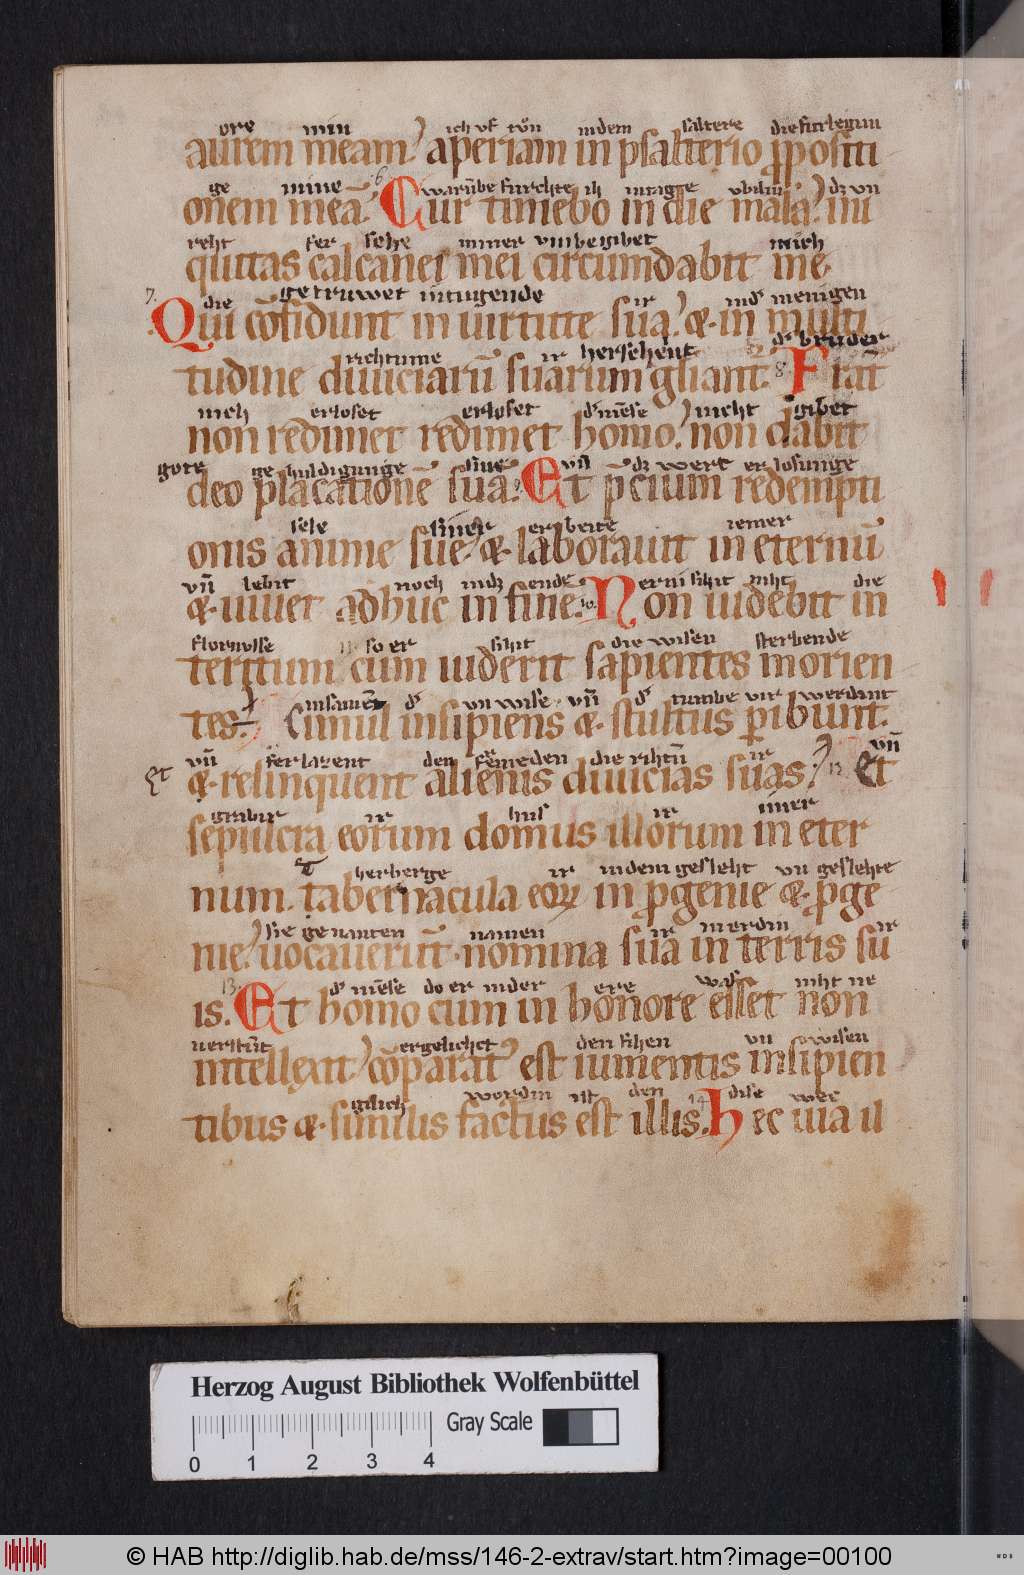 ore min ich uf tůn indem saltere die furlegun
aurem meam. aperiam in psalterio ꝓpositi
ge mine warūbe furchte ih intagte ubiliu dz un
6. onem meā. Cur timebo in die mala. ini
reht fer sehe miner umbegibet mich
quitas calcanei mei circumdabit me.
7. die getruwet intugende ir īnd' menigen
Qui cōfidunt in uirtute sua. &. in multi
richtume ir hershent d' bruder
tudine diuiciarū suarum gl'iant'. 8. Frat'
nieh erloset erloset d' mēse nicht gibet
non redimet redimet homo. non dabit
gote ge huldigunge sine uñ dz wert erlosunge
deo placationē suā. Et p̄cium redempti
sele siner erbeite iemer
onis anime sue. &. laborauit in eternū
uñ lebit noch indz ende Nerni sihit niht die
&. uiuet adhuc in fine. 10. Non uidebit in
flornusse so er sihit die wisen sterbende
teritum cum uiderit sapientes morien
insamēt d' unwise uñ d' tumbe uir werdint
tes. Simul insipiens &. stultus p̱ibunt.
uñ ferlazent den fremeden die rihtū ir uñ
Et &. relinquent alienis diuicias suas. 12. Et
grabir ir hus ir imer
sepulcra eorum domus illorum in eter
herberge ir indem gesleht uñ geslehte
num. tabernacula eoꝝ in ꝓgenie &. ꝓge
sie genanten namen ir inerdin ir
nie. uocauerūt. nomina sua in terris su
13. d' mēse do er inder ere was niht ne
is. Et homo cum in honore esset non
uerstūt ergelichet den fihen uñ sowisen
intellexit cōparat' est iumentis insipien
gilich wordin ist den 14. dise wec
tibus &. similis factus est illis. Hec uia il
Herzog August Bibliothek Wolfenbüttel
Gray Scale
0 1 2 3 4
© HAB http://diglib.hab.de/mss/146-2-extrav/start.htm?image=00100